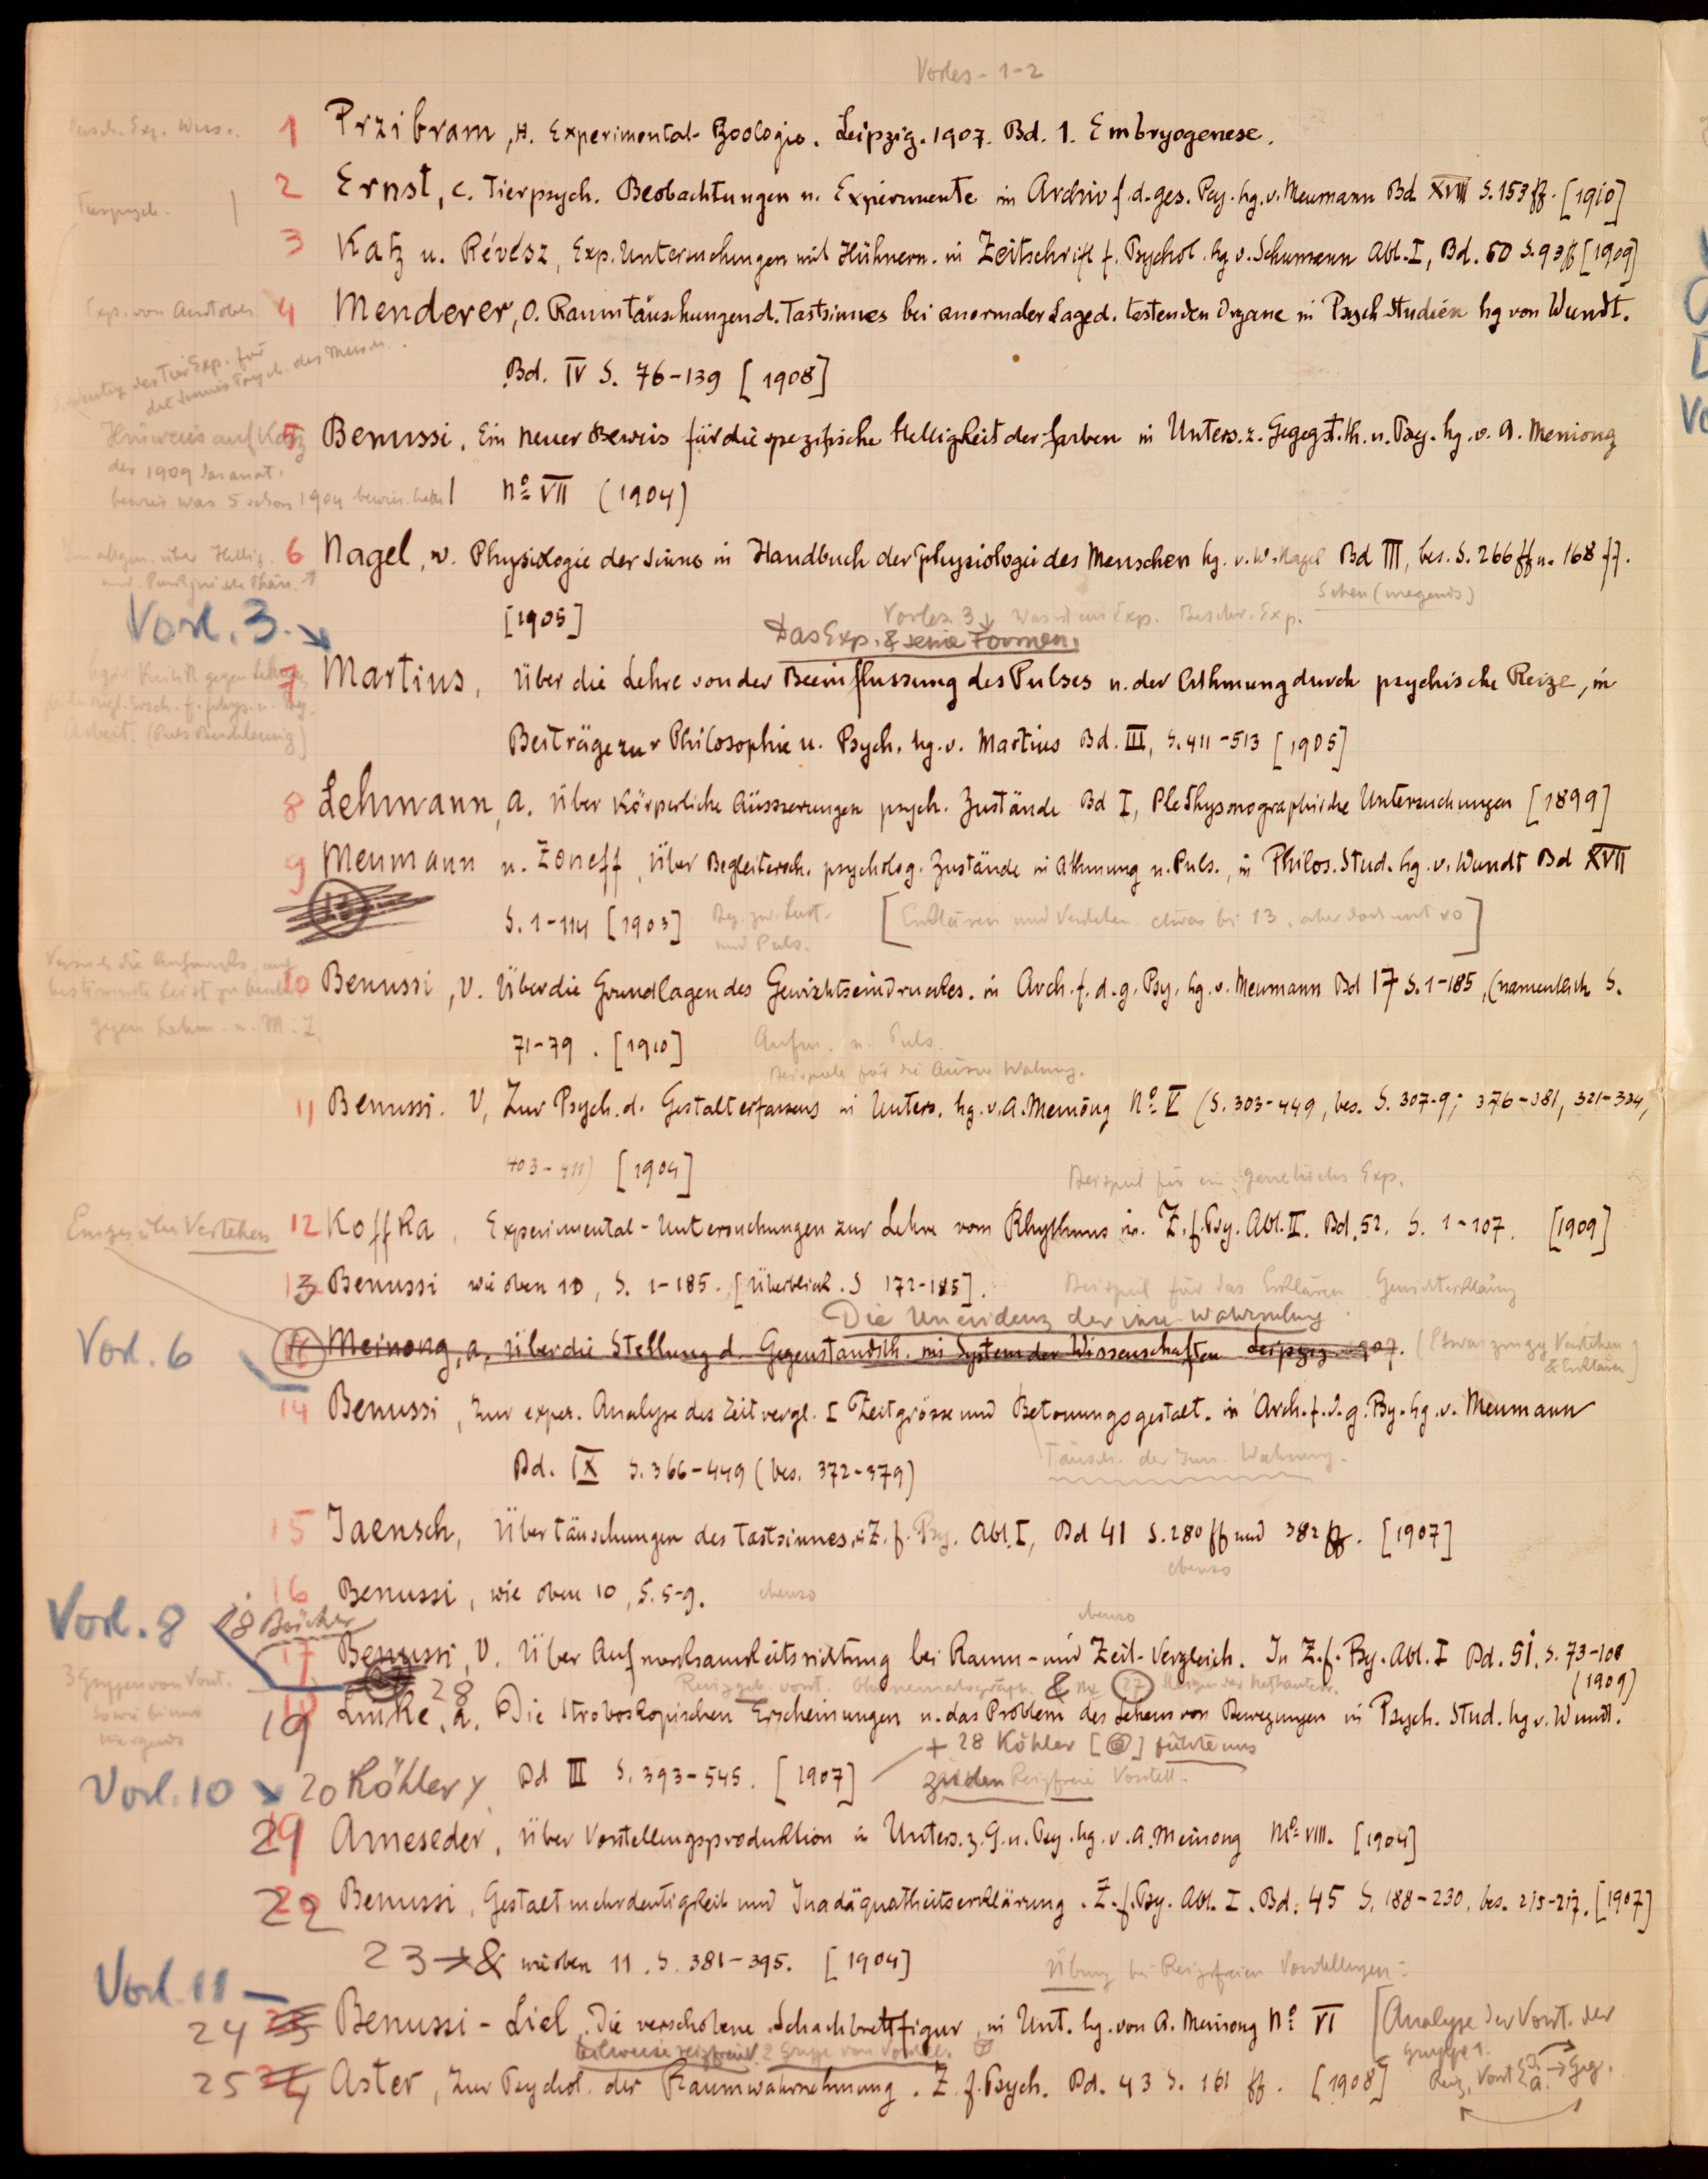 Vorles - 1-2
1 Przibram, H. Experimental-Zoologie. Leipzig. 1907. Bd. 1. Embryogenese.
2 Ernst, C. Tierpsych. Beobachtungen u. Experimente in Archiv f. d. ges. Psy. hg. v. Meumann Bd XVIII S. 153 ff. [1910]
Tierpsych.
3 Katz u. Révész, Exp. Untersuchungen mit Hühnern. in Zeitschrift f. Psychol. hg v. Schumann Abt. I, Bd. 50 S. 93 ff [1909]
4 Menderer, O. Raumtäuschungen d. Tastsinnes bei anormaler Lage d. tastenden Organe in Psych Studien hg von Wundt.
Bd. IV S. 76-139 [1908]
Hinweis auf Katz
5 Benussi, Ein neuer Beweis für die spezifische Helligkeit der Farben in Unters. z. Gegegst. th. u. Psy. hg. v. A. Meniong
der 1909
beweis was 5 schon 1904
No VII (1904)
6 Nagel, W. Physiologie der Sinne in Handbuch der Physiologie des Menschen hg. v. W. Nagel Bd III, bes. S. 266 ff u. 168 ff.
[1905]
Vorl. 3.
Vorles. 3 Was ist ein Exp. Beschr. Exp.
Das Exp. & seine Formen.
7 Martius, Über die Lehre von der Beeinflussung des Pulses u. der Athmung durch psychische Reize, in
Beiträge zur Philosophie u. Psych. hg. v. Martius Bd. III, S. 411-513 [1905]
8 Lehmann, A. Über Körperliche Äusserungen psych. Zustände Bd I, Plethysmographische Untersuchungen [1899]
9 Meumann u. Zoneff, Über Begleitersch. psycholog. Zustände in Athmung u. Puls., in Philos. Stud. hg. v. Wundt Bd XVII
S. 1-114 [1903]
und Puls.
[Erklären und Verstehen etwas bei 13, aber dort wort so]
10 Benussi, V. Über die Grundlagen des Gewichtseindruckes. in Arch. f. d. g. Psy. hg. v. Meumann Bd 17 S. 1-185, (namentlich S.
71-79. [1910]
Aufm. u. Puls.
11 Benussi. V, Zur Psych. d. Gestalterfassens in Unters. hg. v. A. Meinong No V (S. 303-449, bes. S. 307-9; 376-381, 321-334,
403-411) [1904]
Beispiel für ein genetisches Exp.
Einiges über Verstehen
12 Koffka, Experimental-Untersuchungen zur Lehre vom Rhythmus in. Z. f. Psy. Abt. II. Bd. 52. S. 1-107. [1909]
13 Benussi wie oben 10, S. 1-185. [Überblick. S 172-185].
Beispiel für das Erklären
Die Unevidenz der inn. Wahrnehmg
Vorl. 6
Meinong, A. Über die Stellung d. Gegenstandsth. im System der Wissenschaften Leipzig 1907.
14 Benussi, Zur exper. Analyse des Zeitvergl. I Zeitgrösse und Betonungsgestalt. in Arch. f. d. g. Psy. hg. v. Meumann
Bd. IX S. 366-449 (bes. 372-379)
Täusch. der inn. Wahrneng.
15 Jaensch, Über Täuschungen des Tastsinnes, in Z. f. Psy. Abt. I, Bd 41 S. 280 ff und 382 ff. [1907]
ebenso
16 Benussi, wie oben 10, S. 5-9. ebenso
Vorl. 8
18 Bücher
ebenso
17 Benussi, V. Über Aufmerksamkeitsrichtung bei Raum- und Zeit-Vergleich. In Z. f. Psy. Abt. I Bd. 51. S. 73-108
(1909)
3 Gruppen von Vorst.
28
19 Linke, A. Die stroboskopischen Erscheinungen u. das Problem des Sehens von Bewegungen in Psych. Stud. hg v. Wundt.
+ 28 Köhler führte uns
zu den Reizfreie Vorstell.
Bd III S. 393-545. [1907]
Vorl. 10
20 Köhler
29 Ameseder, Über Vorstellungsproduktion in Unters. z. G. u. Psy. hg. v. A. Meinong No VIII. [1904]
22 Benussi, Gestaltmehrdeutigkeit und Inadäquatheitserklärung. Z. f. Psy. Abt. I. Bd. 45 S. 188-230, bes. 215-217. [1907]
23 → & wie oben 11. S. 381-395. [1904]
Übung bei Reizfreien Vorstellungen
Vorl. 11
24 Benussi-Liel, Die verschobene Schachbrettfigur, in Unt. hg. von A. Meinong No VI
[Analyse der Vorst. der
Gruppe 1.
teilweise reizfrei 2 Gruppe von Vorstell.
25 Aster, Zur Psychol. der Raumwahrnehmung. Z. f. Psych. Bd. 43 S. 161 ff. [1908]